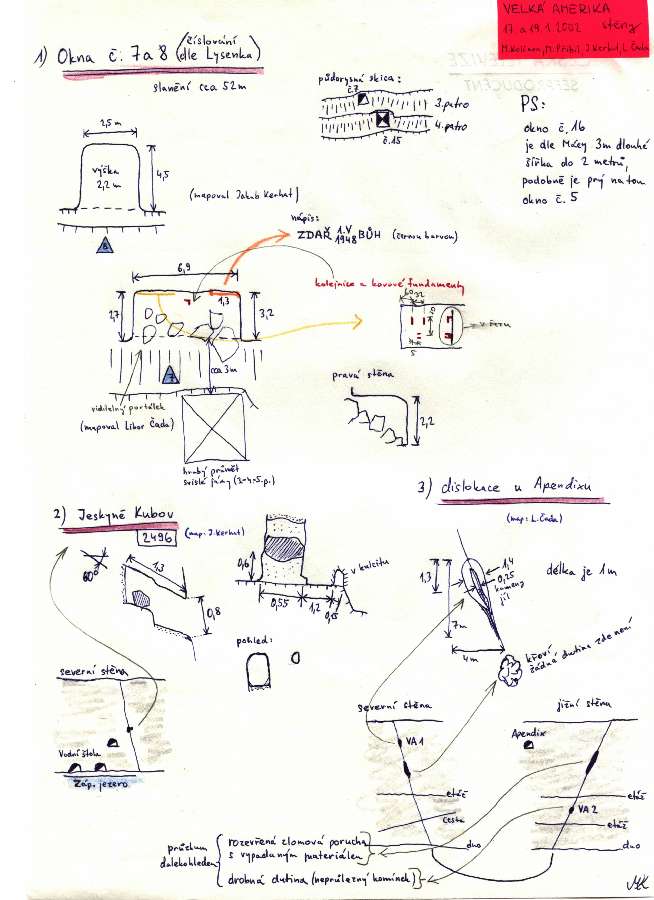 VELKÁ AMERIKA
17. a 19.1.2002 stěny
M. Kolčava, M. Přibil, J. Kerhut, L. Čada
1) Okna č. 7a8 (číslování
dle Lysenka)
slanění cca 52m
půdorysná skica:
č.7
3. patro
4. patro
č.15
PS:
okno č. 16
je dle Mácy 3m dlouhé
šířka do 2 metrů,
podobně je prý na tom
okno č. 5
2,5 m
výška
2,2 m
4,5
(mapoval Jakub Kerhut)
8
nápis:
ZDAŘ 1.V 1948 BŮH (černou barvou)
6,9
kolejnice a kovové fundamenty
1,3
2,7
3,2
60
32
50
5
7
cca 3m
viditelný portálek
(mapoval Libor Čada)
pravá stěna
2,2
hrubý průmět
svislé jámy (3-4-5.p.)
2) Jeskyně Kubov
2496
(map: J. Kerhut)
60°
1,3
0,8
0,6
0,55
1,2
0,15
v kalcitu
pohled:
severní stěna
Vodní štola
Záp. jezero
3) dislokace u Apendixu
(map: L. Čada)
1,3
7m
1,4
0,25
kameny
jíl
4m
délka je 1m
křoví
žádná dutina zde není
severní stěna
jižní stěna
VA 1
Apendix
etáž
cesta
dno
etáž
VA 2
etáž
dno
průzkum
dalekohledem
rozevřená zlomová porucha
s vypadaným materiálem
drobná dutina (neprůlezný komínek)
MK